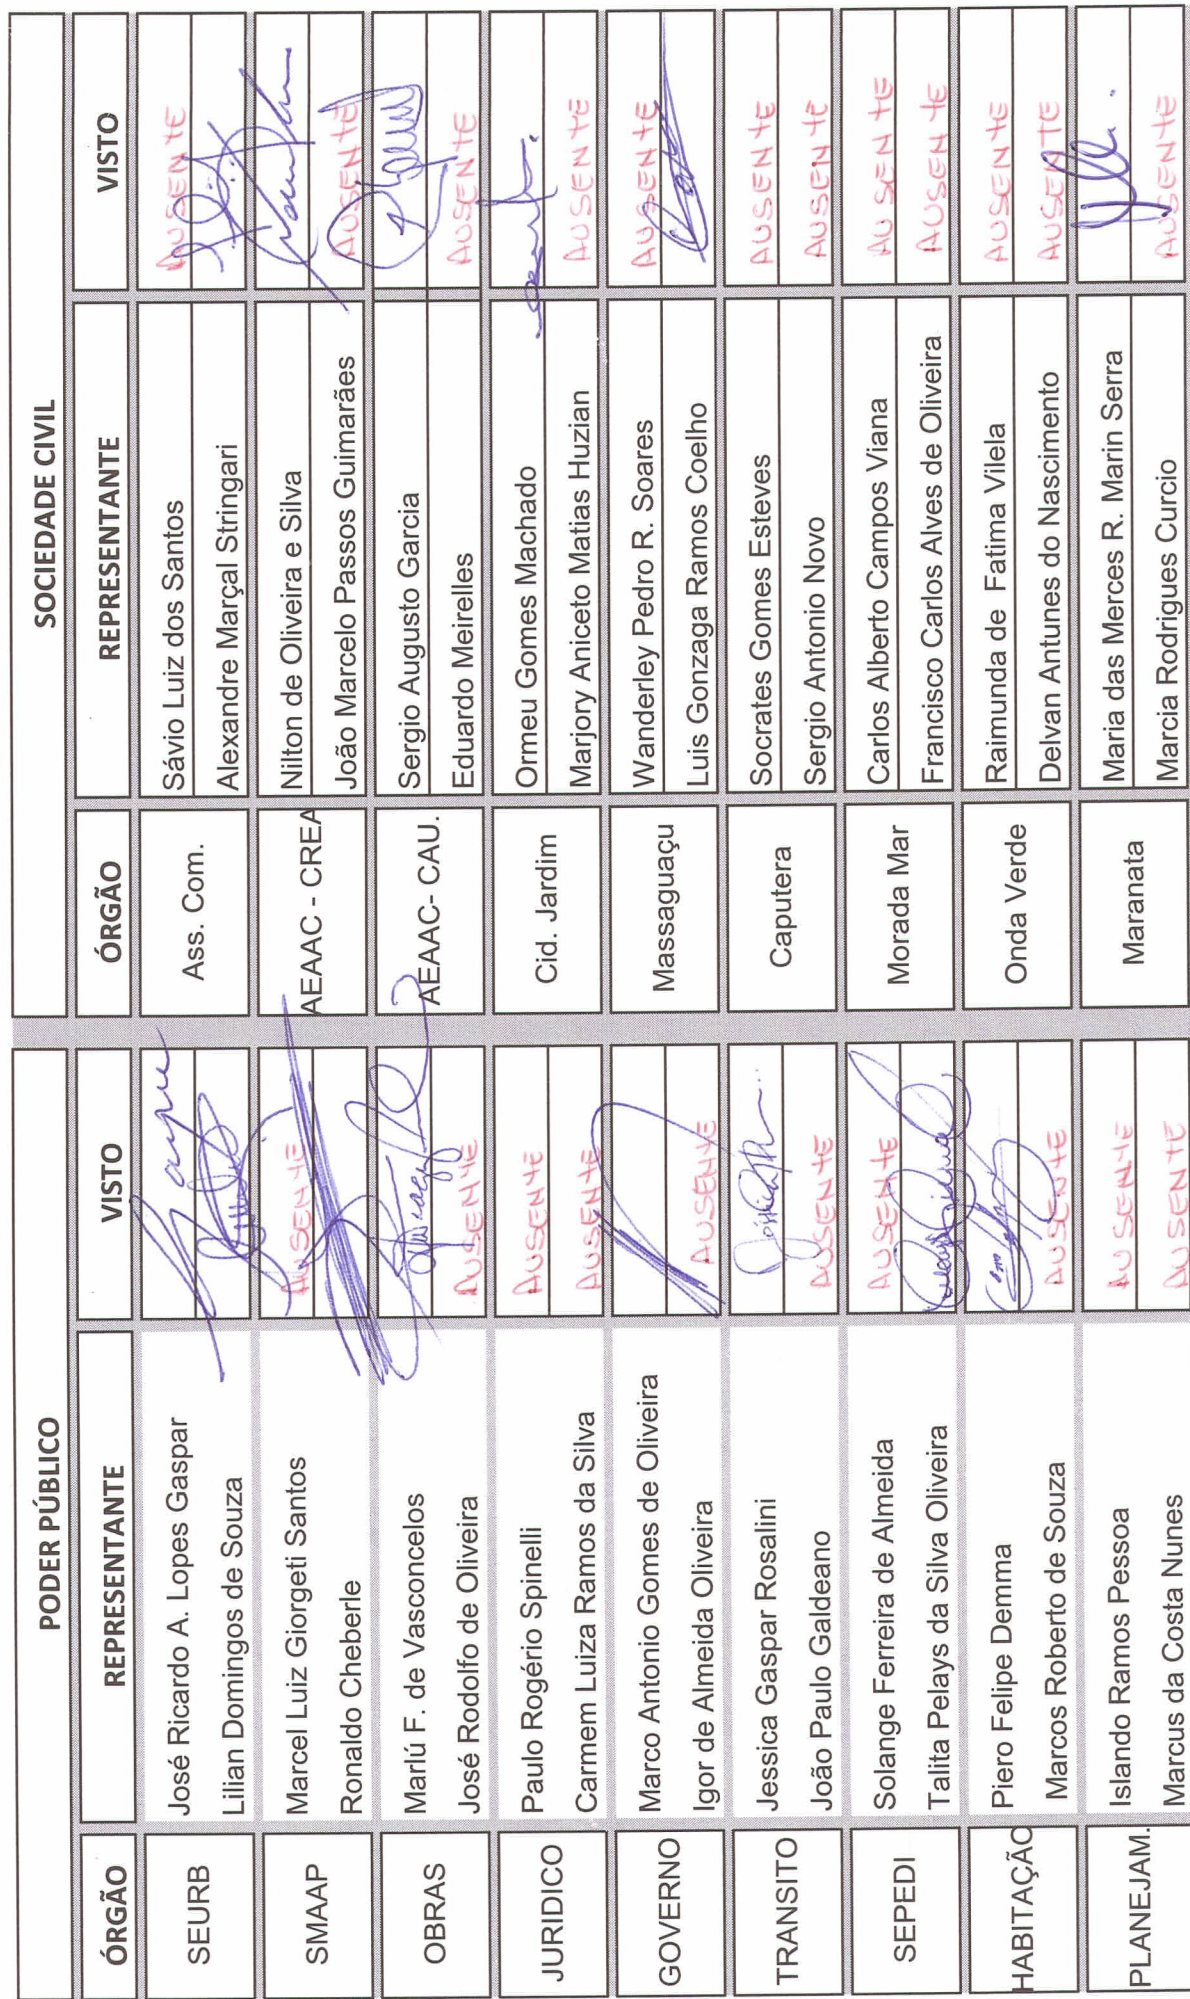 PODER PÚBLICO
ÓRGÃO REPRESENTANTE VISTO
SEURB
José Ricardo A. Lopes Gaspar
Lilian Domingos de Souza
SMAAP
Marcel Luiz Giorgeti Santos AUSENTE
Ronaldo Cheberle
OBRAS
Marlú F. de Vasconcelos
José Rodolfo de Oliveira AUSENTE
JURIDICO
Paulo Rogério Spinelli AUSENTE
Carmem Luiza Ramos da Silva AUSENTE
GOVERNO
Marco Antonio Gomes de Oliveira
Igor de Almeida Oliveira AUSENTE
TRANSITO
Jessica Gaspar Rosalini
João Paulo Galdeano AUSENTE
SEPEDI
Solange Ferreira de Almeida AUSENTE
Talita Pelays da Silva Oliveira
HABITAÇÃO
Piero Felipe Demma
Marcos Roberto de Souza AUSENTE
PLANEJAM.
Islando Ramos Pessoa AUSENTE
Marcus da Costa Nunes AUSENTE
SOCIEDADE CIVIL
ÓRGÃO REPRESENTANTE VISTO
Ass. Com.
Sávio Luiz dos Santos AUSENTE
Alexandre Marçal Stringari
AEAAC - CREA
Nilton de Oliveira e Silva
João Marcelo Passos Guimarães AUSENTE
AEAAC- CAU.
Sergio Augusto Garcia
Eduardo Meirelles AUSENTE
Cid. Jardim
Ormeu Gomes Machado
Marjory Aniceto Matias Huzian AUSENTE
Massaguaçu
Wanderley Pedro R. Soares AUSENTE
Luis Gonzaga Ramos Coelho
Caputera
Socrates Gomes Esteves AUSENTE
Sergio Antonio Novo AUSENTE
Morada Mar
Carlos Alberto Campos Viana AUSENTE
Francisco Carlos Alves de Oliveira AUSENTE
Onda Verde
Raimunda de Fatima Vilela AUSENTE
Delvan Antunes do Nascimento AUSENTE
Maranata
Maria das Merces R. Marin Serra
Marcia Rodrigues Curcio AUSENTE